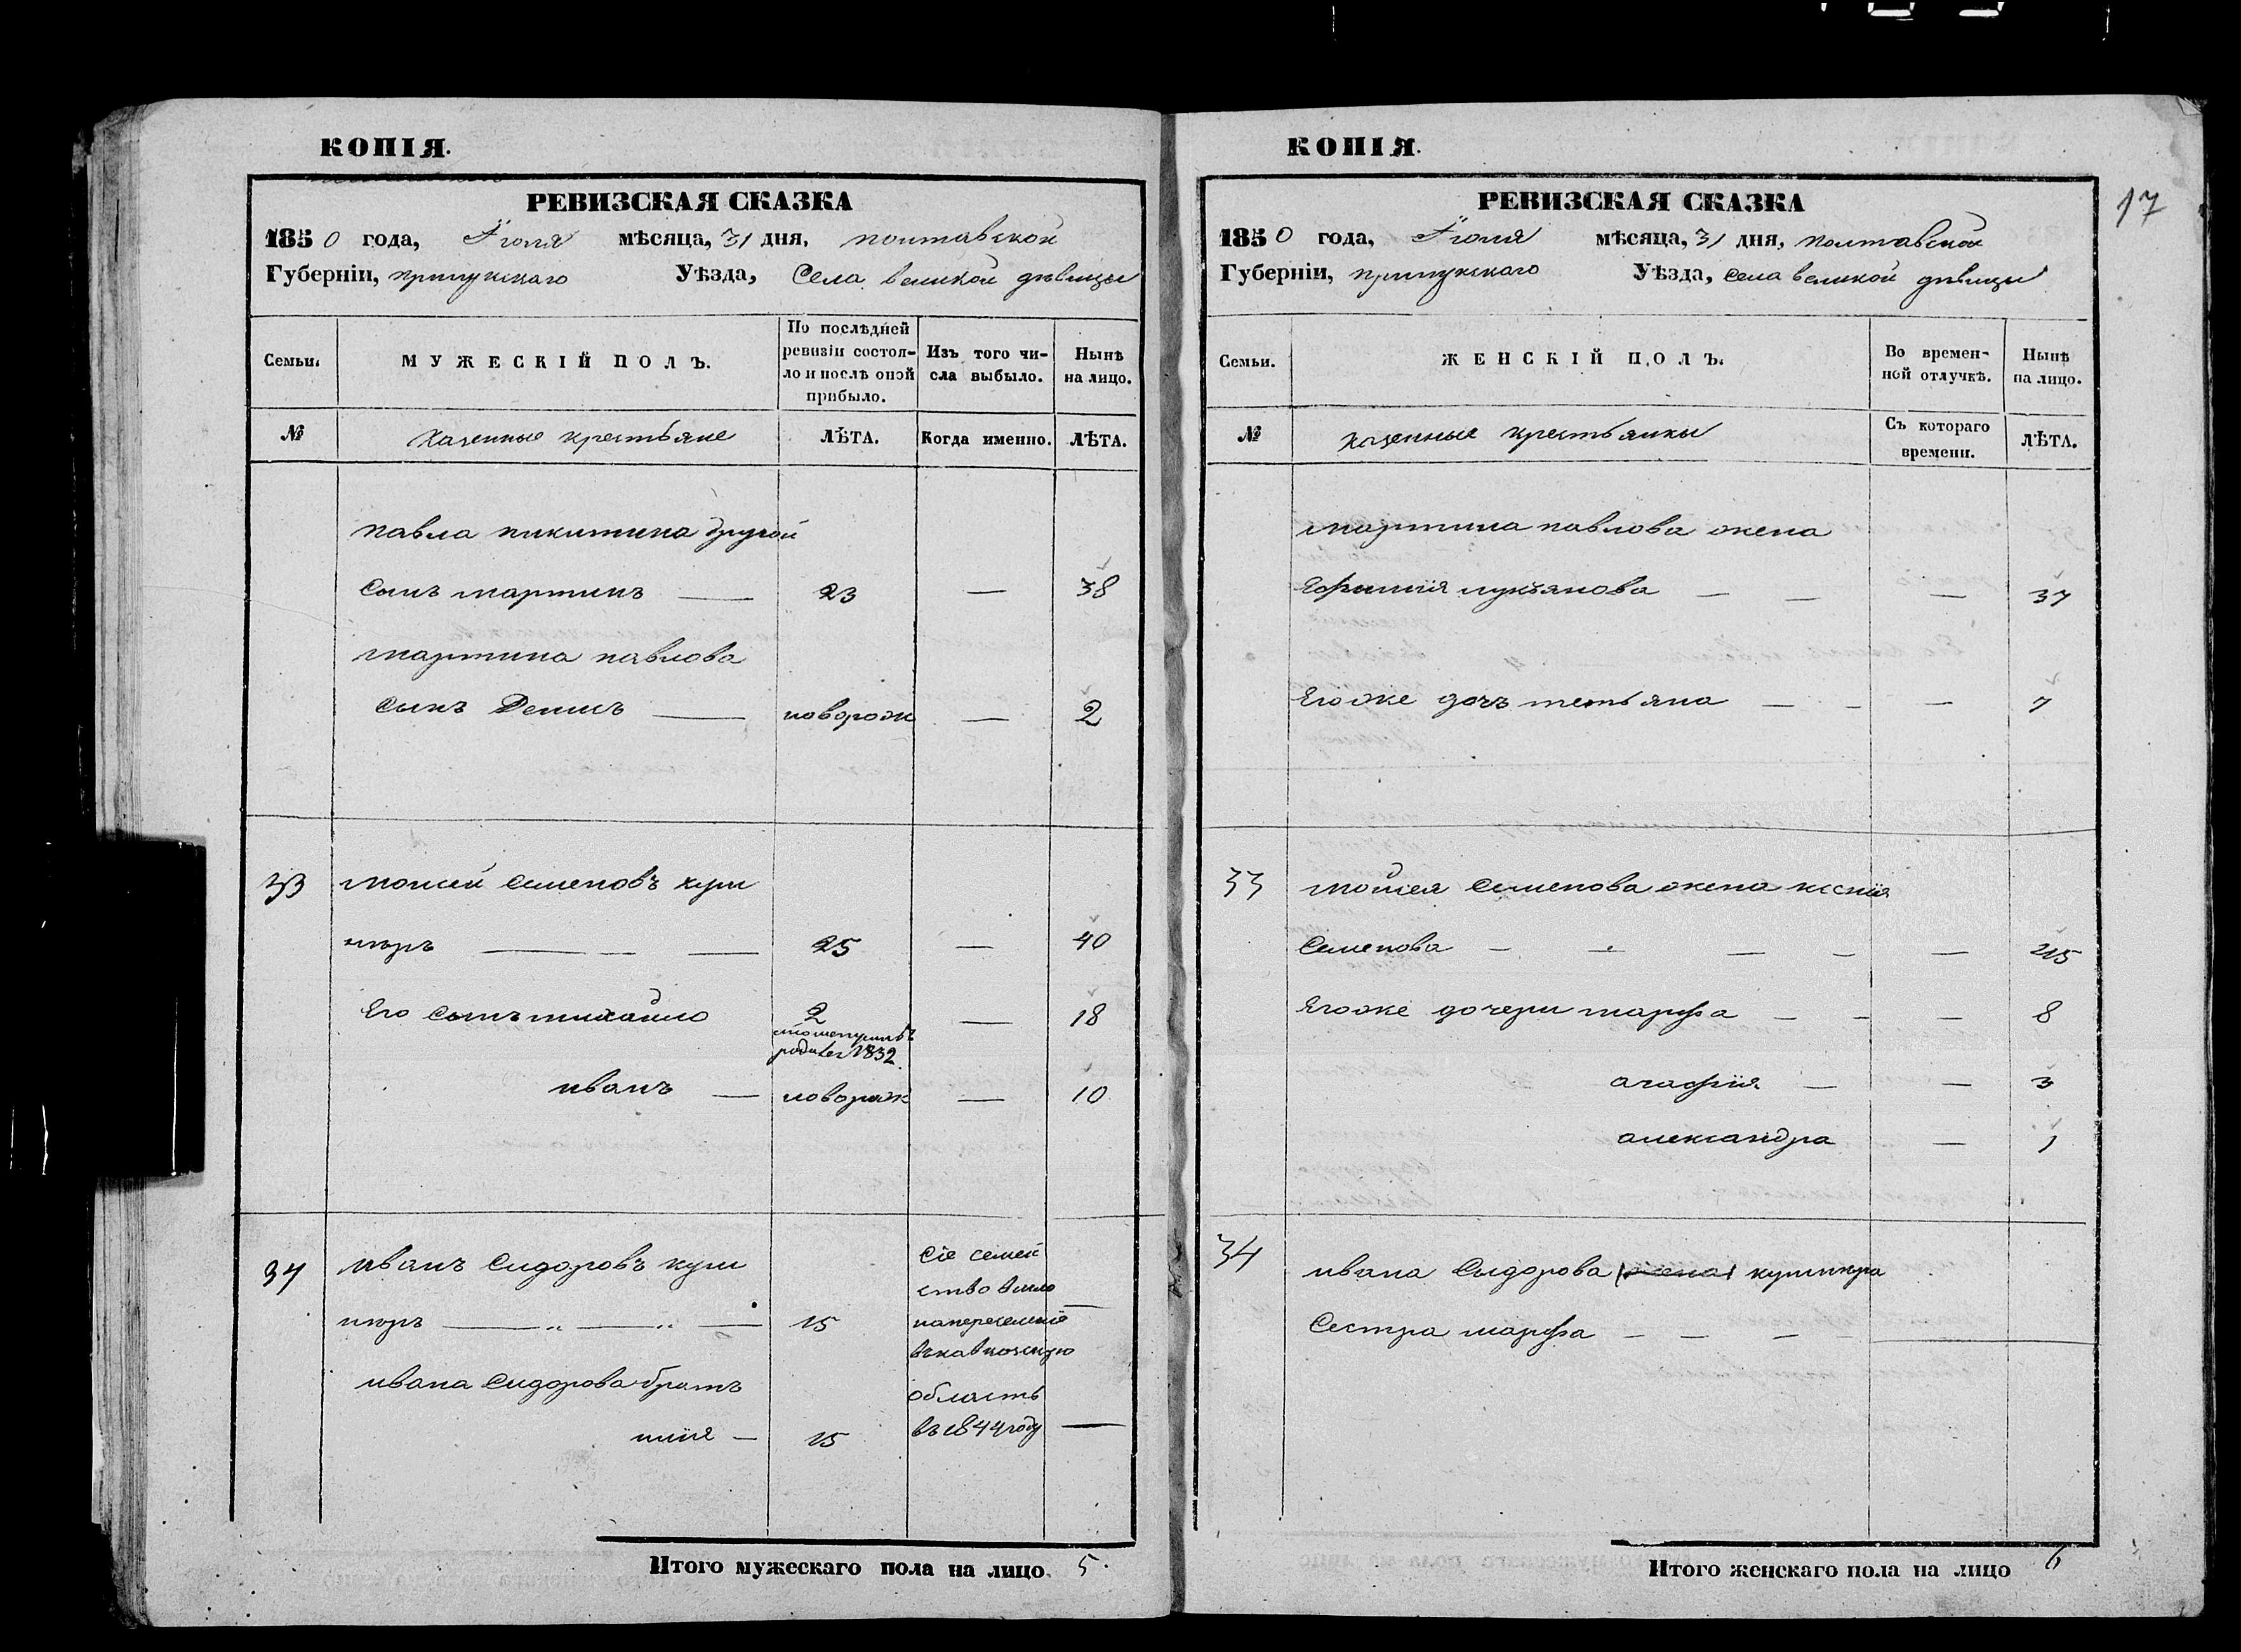 КОПІЯ.
РЕВИЗСКАЯ СКАЗКА
1850 года, Іюля мѣсяца, 31 дня, полтавской
Губерніи, прилукскаго Уѣзда, Села великой дѣвицы
Семьи.
МУЖЕСКІЙ ПОЛЪ.
По послѣдней ревизіи состояло и послѣ оной прибыло.
Изъ того числа выбыло.
Нынѣ на лицо.
№
Казенные крестьяне
ЛѢТА.
Когда именно.
ЛѢТА.
павла никитина другой
сынъ мартинъ — 23 — 38
мартина павлова
сынъ Денисъ — новорож — 2
33 моисей семеновъ куш
нѣръ — — — 25 — 40
Его сынъ михайло 2 — 18
родился 1832
иванъ — новорож — 10
34 иванъ сидоровъ куш
Сіе семей
ство
нѣръ — „ — „ — 15 —
на переселеніе
въ кавказскую
ивана сидорова братъ
область
илія — 15 въ 1844 году —
Итого мужескаго пола на лицо. 5.
КОПІЯ.
17
РЕВИЗСКАЯ СКАЗКА
1850 года, Іюля мѣсяца, 31 дня, полтавской
Губерніи, прилукскаго Уѣзда, села великой дѣвицы
Семьи.
ЖЕНСКІЙ ПОЛЪ.
Во временной отлучкѣ.
Нынѣ на лицо.
№
казенные крестьянки
Съ котораго времени.
ЛѢТА.
мартина павлова жена
Ефимія лукьянова — — — 37
Егоже дочь тетьяна — — — 7
33 моисея семенова жена ксенія
семенова — — — — 45
Егоже дочери марфа — — — 8
агафія — — 3
александра — 1
34 ивана сыдорова кушнира
Сестра марфа — — —
Итого женскаго пола на лицо 6